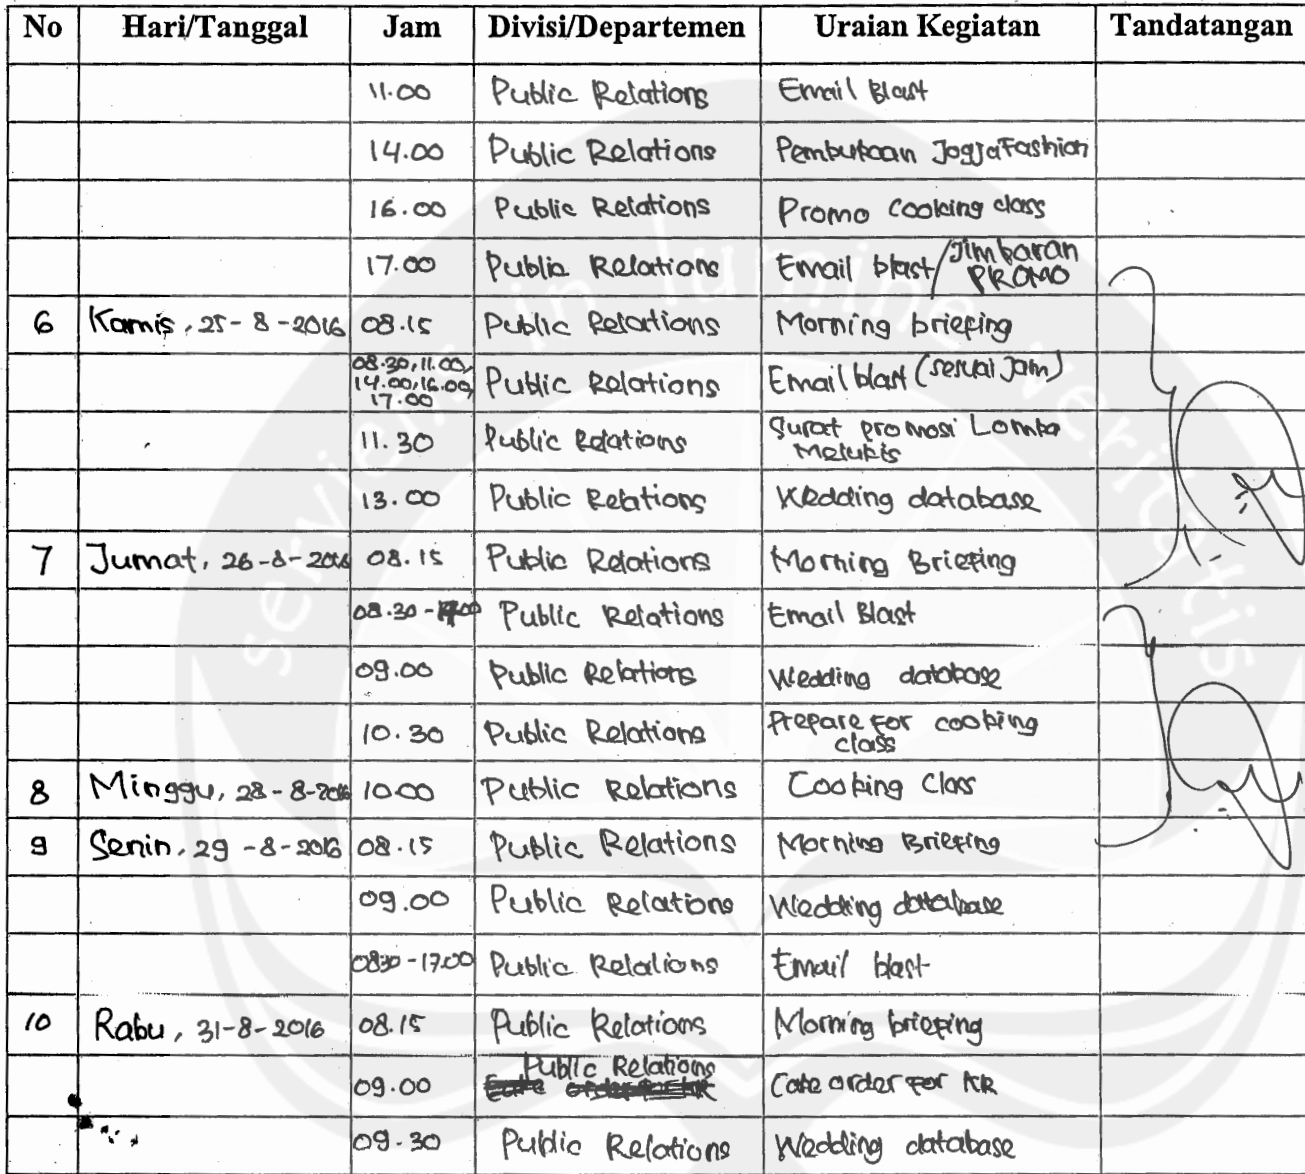 No Hari/Tanggal Jam Divisi/Departemen Uraian Kegiatan Tandatangan
11.00 Public Relations Email Blast
14.00 Public Relations Pembukaan JogjaFashion
16.00 Public Relations Promo Cooking class
17.00 Public Relations Email blast/Jimbaran
PROMO
6 Kamis, 25-8-2016 08.15 Public Relations Morning briefing
08.30, 11.00,
14.00, 16.00, Public Relations Email blast (sesuai Jam)
17.00
11.30 Public Relations Surat promosi Lomba
Melukis
13.00 Public Relations Wedding database
7 Jumat, 26-8-2016 08.15 Public Relations Morning Briefing
08.30 - Public Relations Email Blast
09.00 Public Relations Wedding database
10.30 Public Relations Prepare For cooking
class
8 Minggu, 28-8-2016 10.00 Public Relations Cooking Class
9 Senin, 29-8-2016 08.15 Public Relations Morning Briefing
09.00 Public Relations Wedding database
0830 - 17.00 Public Relations Email blast
10 Rabu, 31-8-2016 08.15 Public Relations Morning briefing
Public Relations
09.00 Cake order For KR
09.30 Public Relations Wedding database
serviens in lumine veritatis